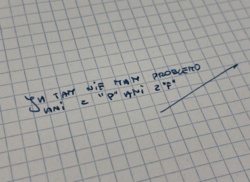 Ja TAM NIE MAM PROBLEMU
ANI Z "P" ANI Z "F"